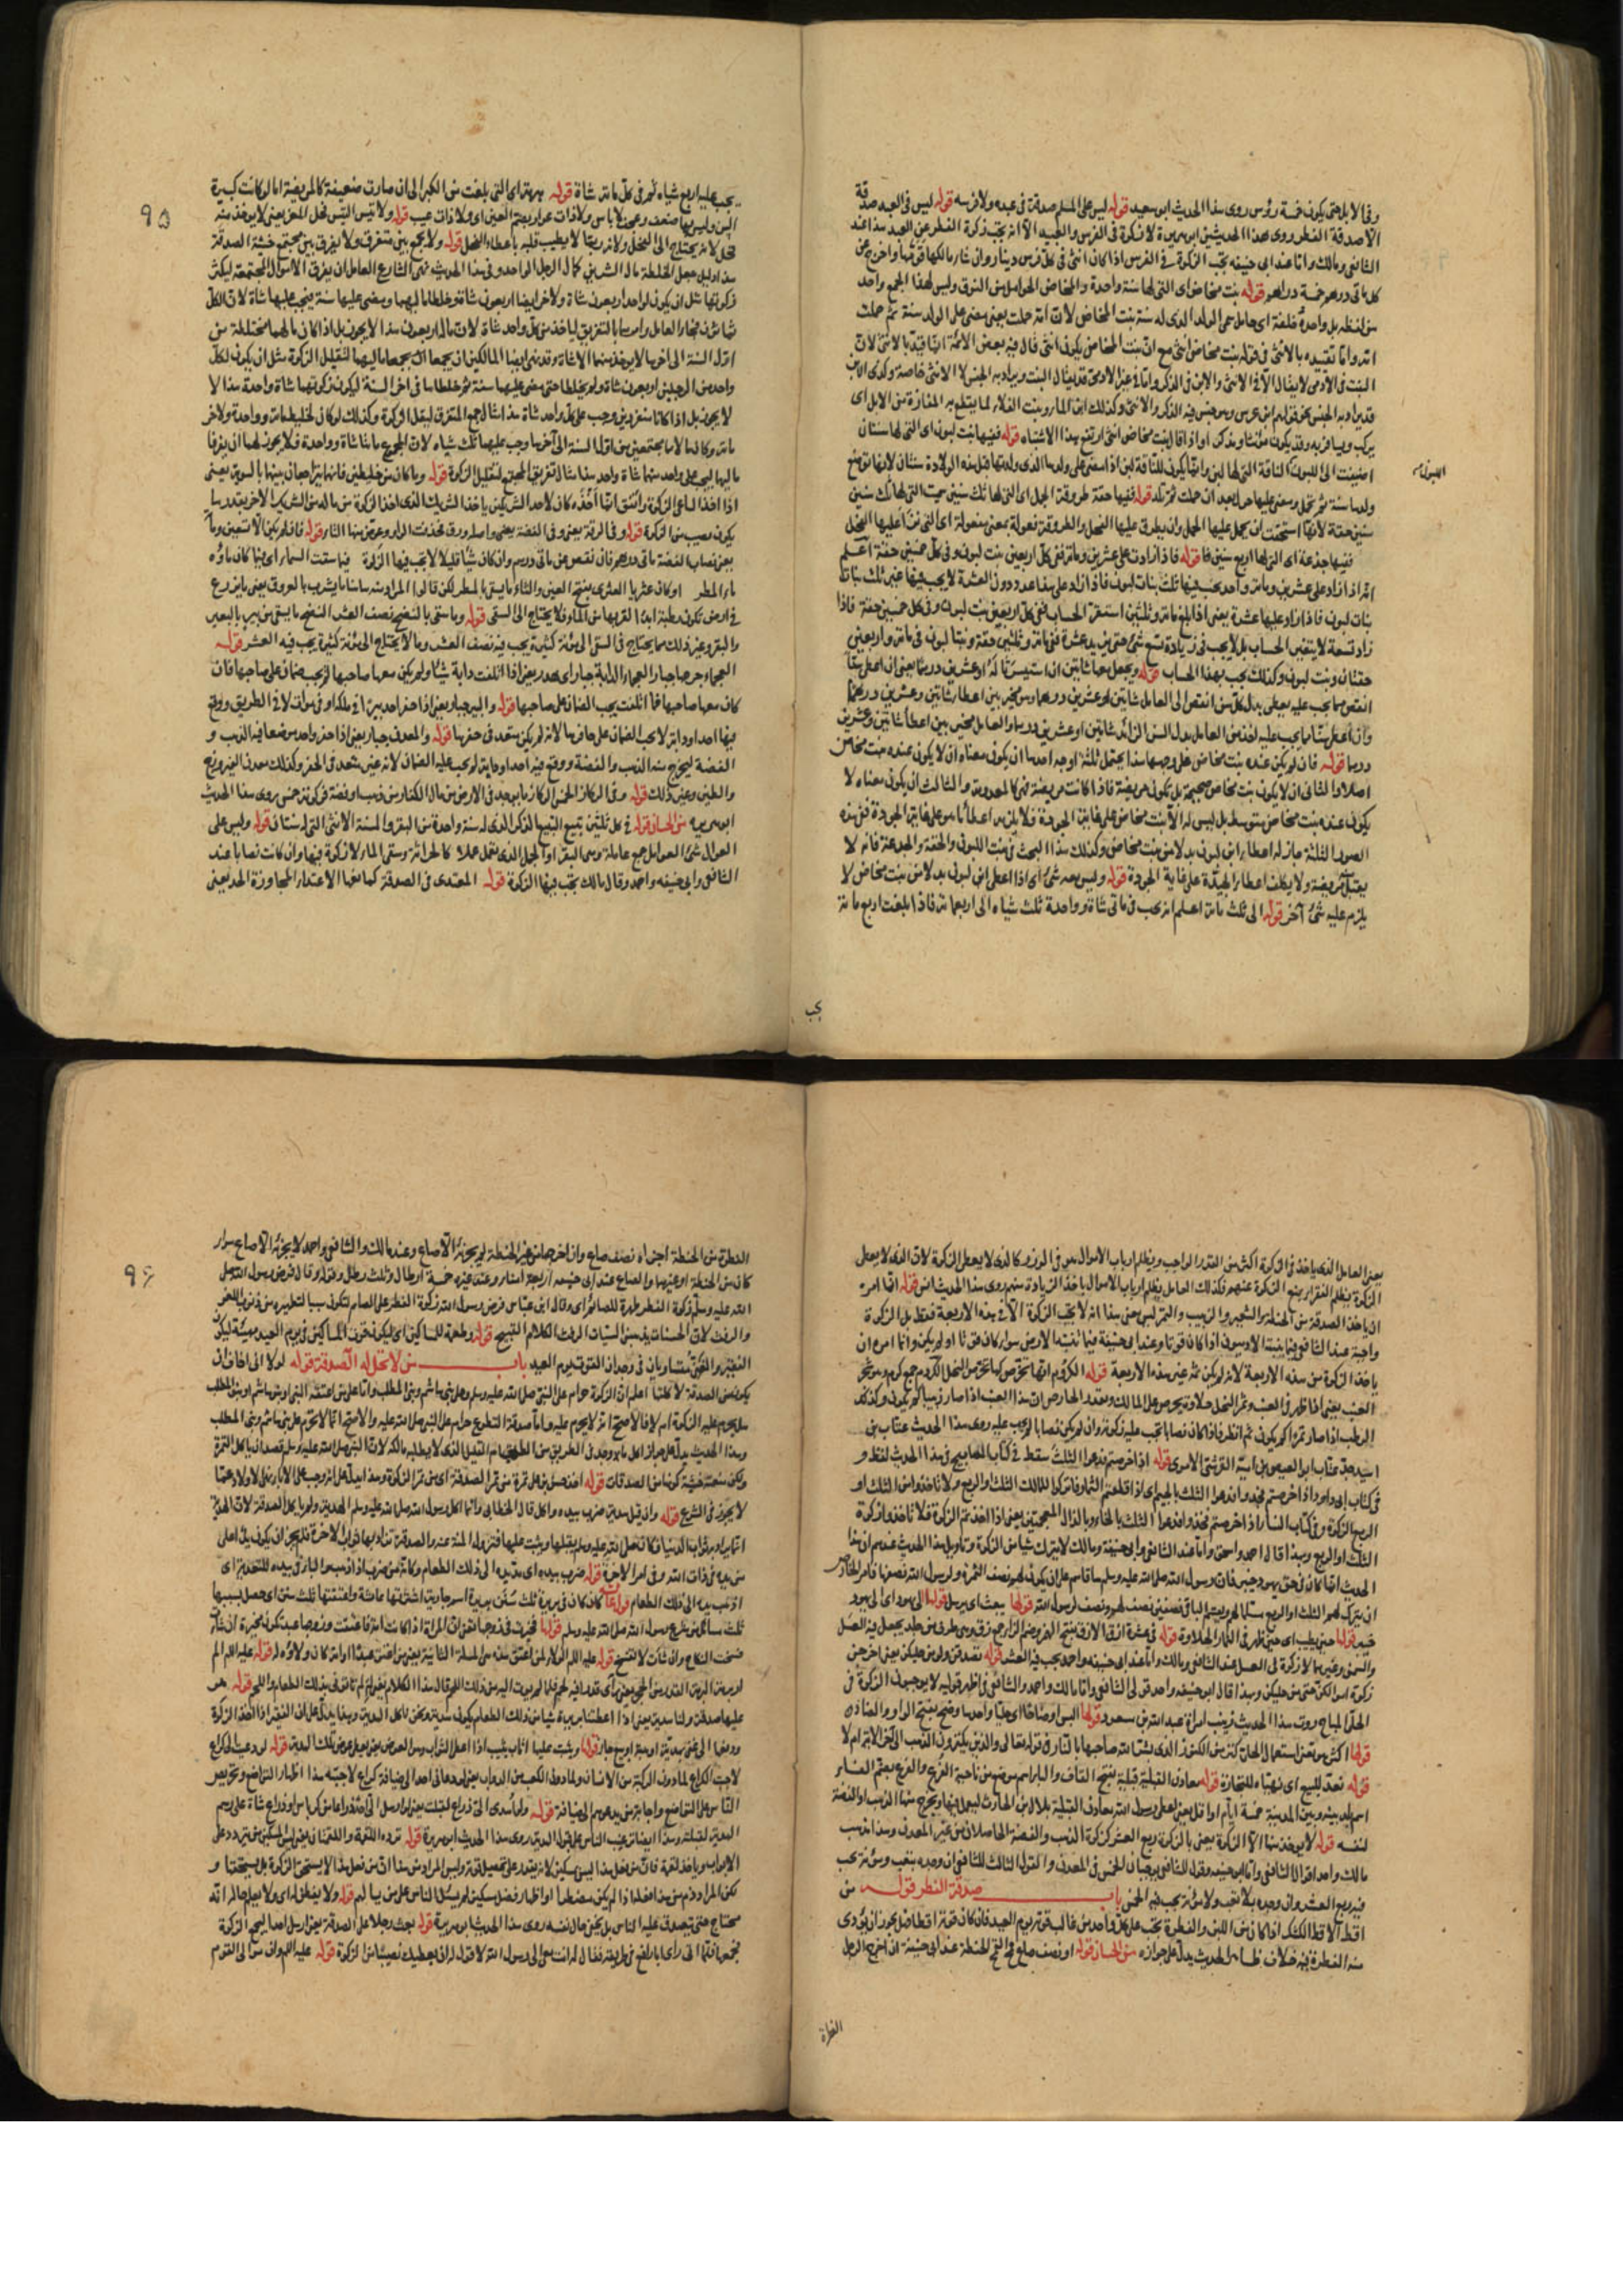 وفى الابل حتى يكون خمسة رؤس روى هذا الحديث ابو سعيد قوله ليس على المسلم صدقة فى عبده ولا فرسه قوله ليس فى العبد صدقة
الا صدقة الفطر روى هذا الحديثين ابو هريرة لا زكوة فى الفرس والعبيد الا انه يجب زكوة الفطر عن العبيد هذا عند
الشافعى ومالك واما عند ابى حنيفه يجب الزكوة فى الفرس اذا كان انثى فى كل فرس دينار وان شاء مالكها قومها واخرج عن
كل مائتى درهم خمسة دراهم قوله بنت مخاض اى التى لها سنة واحدة والمخاض الحوامل من النوق وليس لهذا الجمع واحد
من لفظه بل واحده خلفة اى حامل سمى الولد الذى له سنة بنت المخاض لان امه حملت يعنى مضى على الولد سنة ثم حملت
امه واما تقييده بالانثى فى قوله بنت مخاض انثى مع ان بنت المخاض يكون انثى قال فيه بعض الائمة انما قيد بالانثى لان
البنت فى الادمى لا يقال الا فى الانثى والابن فى الذكر واما فى غير الادمى قد يقال البنت ويراد به الجنس لا الانثى خاصة وكذى الابن
قد يراد به الجنس كقولهم ابن عرس وهو جنس فيه الذكر والانثى وكذلك ابن الماء وبنت الفلاة لما يقطع به المفازة من الابل اى
يركب ويسافر به وقد يكون مؤنثا ومذكرا واذا قال بنت مخاض انثى ارتفع هذا الاشتباه قوله ففيها بنت لبون اى التى لها سنتان
اللبون
اضيفت الى اللبون الناقة التى لها لبن وانما يكون للناقة لبن اذا مضى على ولدها الذى ولدتها قبل هذه الولادة سنتان لانها ترضع
ولدها سنة ثم تحمل ومضى عليها حول بعد ان حملت ثم تلد قوله ففيها حقة طروقة الجمل اى التى لها ثلث سنين سميت التى لها ثلث سنين
سنين حقة لانها استحقت ان يحمل عليها الحمل وان يطرق عليها الفحل والطروقة فعولة بمعنى مفعولة اى التى عليها الفحل
ففيها جذعة اى التى لها اربع سنين قوله فاذا زادت على عشرين ومائة ففى كل اربعين بنت لبون وفى كل خمسين حقة اعلم
انه اذا زاد على عشرين ومائة واحد يجب فيها ثلث بنات لبون فاذا زاد على هذا عدد دون العشرة لا يجب فيها غير ثلث بنات
بنات لبون فاذا زاد عليها عشرة يعنى اذا بلغ مائة وثلثين استقر الحساب ففى كل اربعين بنت لبون وفى كل خمسين حقة فاذا
زاد تسعة لا يتغير الحساب بل لا يجب فى زيادة تسع شئ حتى يزيد عشرة ففى مائة وثلثين حقة وبنتا لبون فى مائة واربعين
حقتان وبنت لبون وكذلك يجب بهذا الحساب قوله ويجعل معها شاتين ان استيسرتا له او عشرين درهما يعنى ان اعطى سنا
انقص مما يجب عليه يعطى بدل كل سن انقص الى العامل شاتين او عشرين درهما وهو مخير بين اعطاء شاتين وعشرين درهما
وان اعطى سنا مما يجب عليه اخذ من العامل بدل السن الزائد شاتين او عشرين درهما والعامل مخير بين اعطاء شاتين وعشرين
درهما قوله فان لم يكن عنده بنت مخاض على وجهها هذا يحتمل ثلثة اوجه احدها ان يكون معناه ان لا يكون عنده بنت مخاض
اصلا والثانى ان لا يكون بنت مخاض صحيحة بل تكون مريضة فاذا كانت مريضة فهى كالمعدومة والثالث ان يكون معناه لا
يكون عنده بنت مخاض متوسطة بل ليس له الا بنت مخاض على غاية الجودة فلا يلزمه اعطاء ما هو على غاية الجودة ففى هذه
الصور الثلثة جاز له اعطاء ابن لبون بدلا من بنت مخاض وكذلك هذا البحث فى بنت اللبون والحقة والجذعة فانه لا
يقبل مريضة ولا يكلف اعطاء الجيدة على غاية الجودة قوله وليس معه شئ اى اذا اعطى ابن لبون بدلا من بنت مخاض لا
يلزم عليه شئ آخر قوله الى ثلث مائة اعلم انه يجب فى مائتى شاة وواحدة ثلث شياه الى اربعمائة فاذا بلغت اربع مائة
يجب
٩٥
يجب عليه اربع شياه ثم فى كل مائة شاة قوله هرمة اى التى بلغت من الكبر الى ان صارت ضعيفة كالمريضة اما لو كانت كبيرة
السن وليس بها ضعف وعجز لا باس ولا ذات عوار بفتح العين اى ولا ذات عيب قوله ولا تيس التيس فحل المعز يعنى لا يوخذ منه
فحل لانه يحتاج الى الفحل ولانه ربما لا يطيب قلبه باعطاء الفحل قوله ولا يجمع بين متفرق ولا يفرق بين مجتمع خشية الصدقة
هذا دليل جعل الخلطة مال الشريكين كمال الرجل الواحد وفى هذا الحديث نهى الشارع العامل ان يفرق الاموال المجتمعة ليكثر
زكوتها مثل ان يكون لواحد اربعون شاة ولاخر ايضا اربعون شاة وخلطا ماليهما ومضى عليها سنة فيجب عليهما شاة لان الكل
ثمانون فجاء العامل وامرهما بالتفريق لياخذ من كل واحد شاة لان مال اربعون هذا لا يجوز بل اذا كان مالهما مختلطة من
اول السنة الى اخرها لا يوخذ منهما الا شاة وقد نهى ايضا المالكين ان يجمعا ماليهما لتقليل الزكوة مثل ان يكون لكل
واحد من الرجلين اربعون شاة ولم يخلطا حتى مضى عليها سنة ثم خلطاها فى اخر السنة ليكون زكوتها شاة واحدة هذا لا
لا يجوز بل اذا كانا منفردين وجب على كل واحد شاة هذا مثال جمع المتفرق ليقل الزكوة وكذلك لو كان لخليط مائة وواحدة ولاخر
مائة وكان مالاهما مجتمعين من اول السنة الى آخرها وجب عليهما ثلث شياه لان المجموع مائتا شاة وواحدة فلا يجوز لهما ان يفرقا
ماليهما ليجب على واحد منهما شاة واحدة هذا مثال تفريق المجتمع لتقليل الزكوة قوله وما كان من خليطين فانهما يتراجعان بينهما بالسوية يعنى
اذا اخذ الساعى الزكوة واتفق انما اخذه كان لاحد الشريكين ياخذ الشريك الذى اخذ الزكوة من ماله من الشريك الاخر بقدر ما
يكون نصيب من الزكوة قوله وفى الرقة يعنى وفى الفضة يعنى واصله ورق فحذفت الواو وعوض منها التاء قوله فان لم يكن الا تسعين وماة
يعنى نصاب الفضة مائتى درهم فان نقص من مائتى درهم وان كان شيئا قليلا لا يجب فيها الزكوة فيما سقت السماء اى فيما كان ماؤه
ماء المطر او كان عثريا العثرى بفتح العين والثاء ما يسقى بالمطر لكن قالوا المراد منه هاهنا ما يشرب بالعروق يعنى ما يزرع
فى ارض تكون رطبة ابدا لقربها من الماء ولا يحتاج الى السقى قوله وما سقى بالنضح نصف العشر النضح ما يسقى من بئر بالبعير
والبقر وغير ذلك مما يحتاج فى السقى الى مؤنة كثيرة يجب فيه نصف العشر وما لا يحتاج الى مؤنة كثيرة يجب فيه العشر قوله
العجماء جرحها جبار العجماء الدابة جبار اى هدر يعنى اذا اتلفت دابة شيئا ولم يكن معها صاحبها لم يجب ضمان على صاحبها فان
كان معها صاحبها فما اتلفت يجب الضمان على صاحبها قوله والبئر جبار يعنى اذا حفر احد بيرا فى ملكه او فى موات لا فى الطريق ووقع
فيها احد او دابة لا يجب الضمان على حافرها لانه لم يكن متعد فى حفرها قوله والمعدن جبار يعنى اذا حفر واحد موضعا فيه الذهب و
الفضة ليخرج منه الذهب والفضة ووقع فيه احد او دابة لم يجب عليه الضمان لانه غير متعد فى الحفر وكذلك معدن الفيروزج
والطين وغير ذلك قوله وفى الركاز الخمس الركاز ما يوجد فى الارض من مال الكفار من ذهب او فضة فزكوته خمس روى هذا الحديث
ابو هريره من الحسان قوله فى كل ثلثين تبيع التبيع الذكر الذى له سنة واحدة من البقر والمسنة الانثى التى له سنتان قوله وليس على
العوامل شئ العوامل جمع عاملة وهى البقر او الجمل الذى يعمل عملا كالحراثة وسقى الماء لا زكوة فيها وان كانت نصابا عند
الشافعى وابى حنيفه واحمد وقال مالك يجب فيها الزكوة قوله المعتدى فى الصدقة كمانعها الاعتداء المجاوزة الحد يعنى
يعنى العامل الذى ياخذ فى الزكوة اكثر من القدر الواجب ويظلم ارباب الاموال هو فى الوزر كالذى لا يعطى الزكوة لان الذى لا يعطى
الزكوة يظلم الفقراء بمنع الزكوة عنهم فكذلك العامل يظلم ارباب الاموال باخذ الزيادة منهم روى هذا الحديث انس قوله انما امره
ان ياخذ الصدقة من الحنطة والشعير والزبيب والتمر ليس معنى هذا انه لا يجب الزكوة الا فى هذه الاربعة فقط بل الزكوة
واجبة عند الشافعى فيما ينبته الادميون اذا كان قوتا وعند ابى حنيفة فيما تنبته الارض سواء كان قوتا او لم يكن وانما امره ان
ياخذ الزكوة من هذه الاربعة لانه لم يكن ثمه غير هذه الاربعة قوله الكروم انها تخرص كما تخرص النخل الكروم جمع كرم وهو شجر
العنب يعنى اذا ظهر فى العنب وثمر النخل حلاوة يخرص على المالك ويقدر الخارص ان هذا العنب اذا صار زبيبا كم يكون وكذلك
الرطب اذا صار تمرا كم يكون ثم انظر فاذا كان نصابا يجب عليه زكوته وان لم يكن نصابا لم يجب عليه روى هذا الحديث عتاب بن
اسيد جد عتاب ابو العيص بن امية القرشى الاموى قوله اذا خرصتم فدعوا الثلث سقط فى كتاب المصابيح فى هذا الحديث لفظ و
فى كتاب ابى داود اذا خرصتم فخذوا ودعوا الثلث
الربع الزكوة وفى كتاب النسائى اذا خرصتم فخذوا ودعوا الثلث بالخاء وبالذال المعجمتين يعنى اذا اخذتم الزكوة فلا تاخذوا زكوة
الثلث او الربع وبهذا قال احمد واسحق واما عند الشافعى وابى حنيفة ومالك لا يترك شيئا من الزكوة وتاويل هذا الحديث عندهم ان هذا
الحديث انما كان فى حق يهود خيبر فان رسول الله صلى الله عليه وسلم ساقاهم على ان يكون لهم نصف الثمرة ولرسول الله نصفها فامر الخارص
ان يترك لهم الثلث او الربع مسلما لهم ويقسم الباقى نصفين نصف لهم ونصف لرسول الله قولها يبعث اى يرسل قولها الى يهود اى الى يهود
خيبر قولها حين يطيب اى حين ظهر فى الثمار الحلاوة قوله فى عشرة ازق الازق بفتح الهمزة وضم الزاء جمع زق وهو ظرف من جلد يجعل فيه العسل
والسمن وغيرهما لا زكوة فى العسل عند الشافعى ومالك واما عند ابى حنيفة واحمد يجب فيه العشر قوله تصدقن ولو من حليكن يعنى اخرجن
زكوة اموالكن حتى من حليكن وبهذا قال ابو حنيفه واحد قولى الشافعى واما مالك واحمد والشافعى فى اظهر قوليه لا يوجبون الزكوة فى
الحلى المباح روت هذا الحديث زينب امرأة عبد الله بن مسعود قولها البس اوضاحا اى حليا واحدها وضح بفتح الواو والضاد
قولها اكنز هو تعنى استعمال الحلى كنز من الكنوز الذى بشر الله صاحبها بالنار فى قوله تعالى والذين يكنزون الذهب الى آخر الاية ام لا
قوله نعد للبيع اى نهيأه للتجارة قوله معادن القبلية قبلية بفتح القاف والباء اسم موضع من ناحية الفرع والفرع بضم الفاء
اسم بلد بينه وبين المدينة خمسة ايام او اقل يعنى اعطى رسول الله معادن القبلية بلال بن الحارث ليعمل فيها ويخرج منها الذهب والفضة
لنفسه قوله لا يوخذ منها الا الزكوة يعنى بالزكوة ربع العشر كزكوة الذهب والفضة الحاصلان من غير المعدن وهذا مذهب
مالك واحد اقوال الشافعى واما ابو حنيفه وقول للشافعى يوجبان الخمس فى المعدن والقول الثالث للشافعى ان وجده بتعب ومؤنة يجب
فيه ربع العشر وان وجده بلا تعب ولا مؤنة يجب فيه الخمس باب صدقة الفطر قوله من
اقط الاقط الكشك اذا كان من اللبن والفطرة يجب على كل واحد من غالب قوته يوم العيد فان كان قوته اقط هل يجوز ان يؤدى
منه الفطرة فيه خلاف ظاهر الحديث يدل على جوازه من الحسان قوله او نصف صاع قمح القمح الحنطة عند ابى حنيفة ان اخرج الرجل
الفطرة
٩٦
الفطرة من الحنطة اجزاه نصف صاع وان اخرجها من غير الحنطة لم يجزئه الا صاع وعند مالك والشافعى واحمد لا يجزئه الا صاع سواء
كان من الحنطة او غيرها والصاع عند ابى حنيفه اربعة امناء وعند غيره خمسة ارطال وثلث رطل وقوله وقال فرض رسول الله صلى
الله عليه وسلم زكوة الفطر طهرة للصائم اى وقال ابن عباس فرض رسول الله زكوة الفطر على الصائم لتكون سببا لتطهيره من ذنوب اللغو
والرفث لان الحسنات يذهبن السيئات الرفث الكلام القبيح قوله وطعمة للمساكين اى ليكون قوت المساكين فى يوم العيد ليكون
الفقير والغنى متساويان فى وجدان القوت يوم العيد باب من لا تحل له الصدقة قوله لولا انى اخاف ان
يكون من الصدقة لاكلتها اعلم ان الزكوة حرام على النبى صلى الله عليه وسلم وعلى بنى هاشم وبنى المطلب واما على من اعتقه النبى او بنو هاشم او بنو المطلب
هل يحرم عليه الزكوة ام لا فالاصح انه لا يحرم عليه واما صدقة التطوع حرام على النبى صلى الله عليه والاصح انها لا تحرم على بنى هاشم وبنى المطلب
وهذا الحديث يدل على جواز اكل ما يوجد فى الطريق من الطعام القليل الذى لا يطلبه مالكه لان النبى صلى الله عليه وسلم قصد ان ياكل التمرة
ولكن منعته خشية كونها من الصدقات قوله اخذ حسن بن على تمرة من تمر الصدقة اى من تمر الزكوة وهذا يدل على انه وجب على الاباء نهى اولادهم عما
لا يجوز فى الشرع قوله وان قيل هدية ضرب بيده واكل قال الخطابى وانما اكل رسول الله صلى الله عليه وسلم الهدية ولم ياكل الصدقة لان الهدية
انما يراد بها ثواب الدنيا فكان صلى الله عليه وسلم يقبلها ويثيب عليها فتزول المنة عنه والصدقة يراد بها ثواب الاخرة فلم يجز ان يكون يد اعلى
من يده فى ذات الله وفى امر الاخرة قوله ضرب بيده اى مد يده الى ذلك الطعام
اذهب بيده الى ذلك الطعام قوله كان كان فى بريرة ثلث سنن بريرة اسم جارية اشترتها عائشة واعتقتها ثلث سنن اى حصل بسببها
ثلث مسائل من شرع رسول الله صلى الله عليه وسلم قولها فخيرت فى زوجها يعنى ان المرأة اذا كانت امة فاعتقت وزوجها عبد تكون مخيرة ان شاءت
فسخت النكاح وان شاءت لا تفسخ قوله عليه السلام الولاء لمن اعتق هذه هى المسئلة الثانية يعنى من اعتق عبدا او امة كان ولاؤه له قوله عليه السلام الم
ار برمة البرمة القدر من الحجر يعنى راى قدرا فيه لحم فلما لم يؤت اليه من ذلك اللحم قال هذا الكلام لم تأتونى بذلك الطعام واللحم قوله هو
عليها صدقة ولنا هدية يعنى اذا اعطتنا بريرة شيئا من ذلك الطعام يكون هدية ونحن ناكل الهدية وبهذا يدل على ان الفقير اذا اخذ الزكوة
ودفعها الى غنى بهدية او بيع جاز قوله ويثيب عليها اثاب يثيب اذا اعطى الثواب وهو العوض يعنى يعطى عوض تلك الهدية قوله لو دعيت الى كراع
لاجبت الكراع ما دون الركبة من الانسان وما دون الكعب من الدواب يعنى لو دعانى احد الى ضيافة كراع لاجبته هذا اظهار التواضع وتحريض
الناس على التواضع واجابة من يدعوهم الى ضيافة قوله ولو اهدى الى ذراع لقبلت يعنى لو ارسل الى احد ذراعا من كرباس او ذراع شاة على رسم
الهدية لقبلته وهذا ايضا ترغيب الناس على قبول الهدية روى هذا الحديث ابو هريرة قوله ترده اللقمة واللقمتان يعنى ليس المسكين من يتردد على
الابواب وياخذ لقمة فان من فعل هذا ليس بمسكين لانه يقدر على تحصيل قوته وليس المراد من هذا ان من فعل هذا لا يستحق الزكوة بل يستحقها و
لكن المراد ذم من هذا فعله اذا لم يكن مضطرا او اظهار فضل مسكين لم يسئل الناس على من يسألهم قوله ولا يفطن له اى ولا يعلم حاله انه
محتاج حتى يتصدق عليه الناس بل يخفى حال نفسه روى هذا الحديث ابو هريرة قوله بعث رجلا على الصدقة يعنى ارسل احدا ليجمع الزكوة
فجمعها فلما اتى راى ابا رافع فى طريقه فقال له ائت معى الى رسول الله لاقول له ان يعطيك نصيبا من الزكوة قوله عليه السلام وان موالى القوم